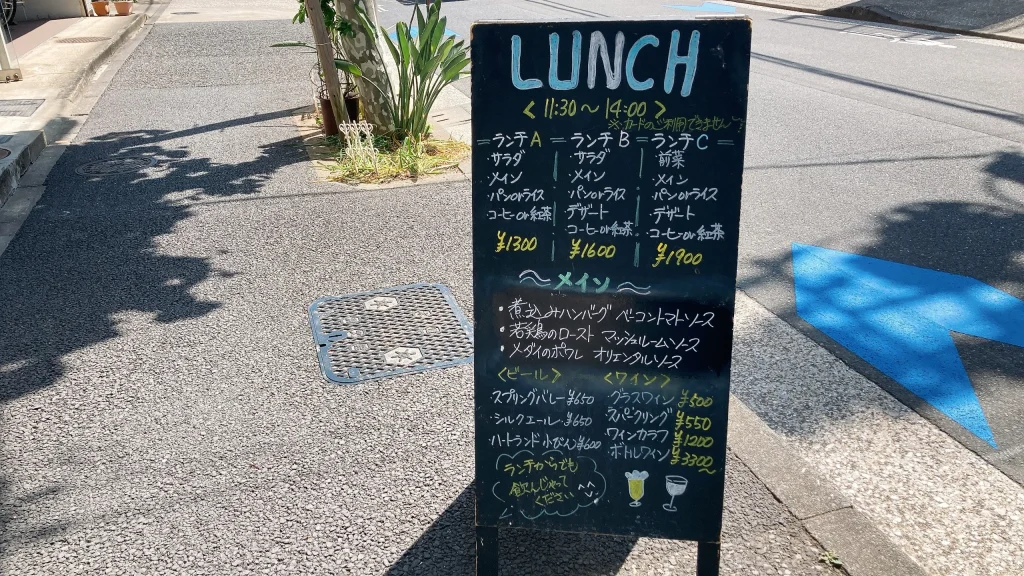 LUNCH
< 11:30〜14:00 >
※カードのご利用できません
ランチA
・サラダ
・メイン
・パンorライス
・コーヒーor紅茶
¥1300
ランチB
・サラダ
・メイン
・パンorライス
・デザート
コーヒーor紅茶
¥1600
ランチC
・前菜
・メイン
・パンorライス
・デザート
・コーヒーor紅茶
¥1900
メイン
・煮込みハンバーグ ベーコントマトソース
・若鶏のロースト マッシュルームソース
・メダイのポワレ オリエンタルソース
<ビール>
スプリングバレー ¥650
・シルクエール ¥650
・ハートランド小びん ¥600
<ワイン>
グラスワイン ¥500
スパークリング ¥550
ワインカラフ ¥1200
ボトルワイン ¥3300〜
ランチからでも
飲んじゃって
ください